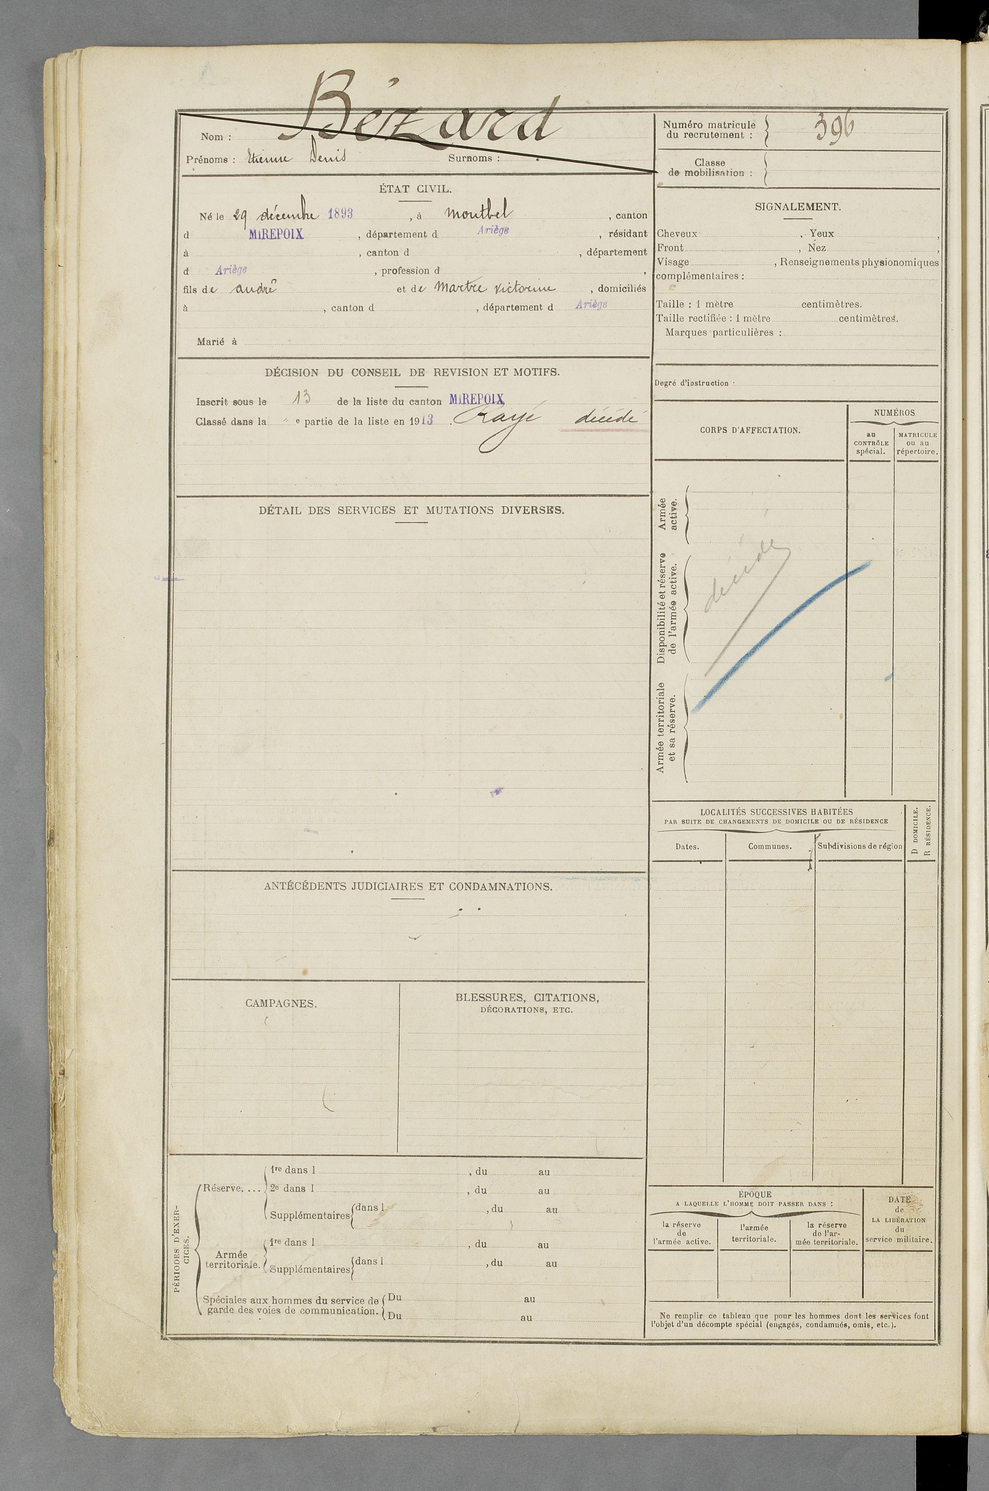 Nom : Bézard
Prénoms : Etienne Denis Surnoms :
Numéro matricule du recrutement : 396
Classe de mobilisation :
ÉTAT CIVIL.
Né le 29 décembre 1893, à Montbel, canton
d MIREPOIX, département d Ariège, résidant
à , canton d , département
d Ariège, profession d ,
fils de André et de Martre Victorine, domiciliés
à , canton d , département d Ariège
Marié à
SIGNALEMENT.
Cheveux , Yeux ,
Front , Nez ,
Visage , Renseignements physionomiques
complémentaires :
Taille : 1 mètre centimètres.
Taille rectifiée : 1 mètre centimètres.
Marques particulières :
Degré d'instruction
DÉCISION DU CONSEIL DE REVISION ET MOTIFS.
Inscrit sous le 13 de la liste du canton MIREPOIX
Classé dans la e partie de la liste en 1913. Rayé décédé
CORPS D'AFFECTATION.
NUMÉROS
au CONTRÔLE spécial.
MATRICULE ou au répertoire.
Armée active.
Disponibilité et réserve de l'armée active.
Armée territoriale et sa réserve.
décédé
DÉTAIL DES SERVICES ET MUTATIONS DIVERSES.
LOCALITÉS SUCCESSIVES HABITÉES
PAR SUITE DE CHANGEMENTS DE DOMICILE OU DE RÉSIDENCE
Dates. Communes. Subdivisions de région
D DOMICILE.
R RÉSIDENCE.
ANTÉCÉDENTS JUDICIAIRES ET CONDAMNATIONS.
CAMPAGNES.
BLESSURES, CITATIONS,
DÉCORATIONS, ETC.
PÉRIODES D'EXERCICES.
Réserve....
1re dans l , du au
2e dans l , du au
Supplémentaires dans l , du au
Armée territoriale.
1re dans l , du au
Supplémentaires dans l , du au
Spéciales aux hommes du service de Du au
garde des voies de communication. Du au
ÉPOQUE
A LAQUELLE L'HOMME DOIT PASSER DANS :
la réserve de l'armée active.
l'armée territoriale.
la réserve de l'armée territoriale.
DATE de LA LIBÉRATION du service militaire.
Ne remplir ce tableau que pour les hommes dont les services font
l'objet d'un décompte spécial (engagés, condamnés, omis, etc.).